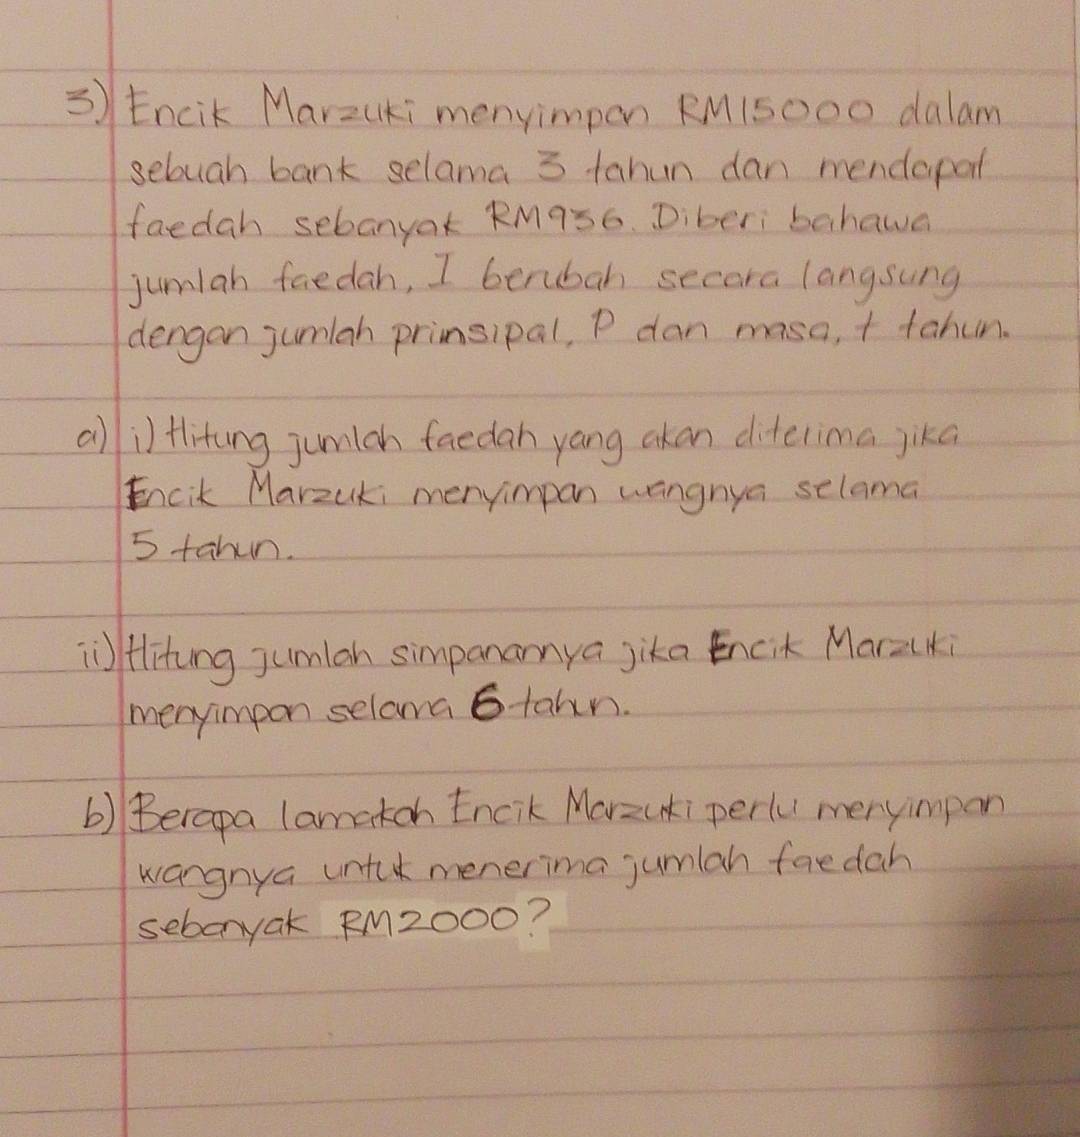 3) Encik Marzuki menyimpan RM15000 dalam
sebuah bank selama 3 tahun dan mendapat
faedah sebanyak RM936. Diberi bahawa
jumlah faedah, I berubah secara langsung
dengan jumlah prinsipal, P dan masa, t tahun.
a) i) Hitung jumlah faedah yang akan diterima jika
Encik Marzuki menyimpan wangnya selama
5 tahun.
ii) Hitung jumlah simpanannya jika Encik Marzuki
menyimpan selama 6 tahun.
b) Berapa lamakah Encik Marzuki perlu menyimpan
wangnya untuk menerima jumlah faedah
sebanyak RM2000?